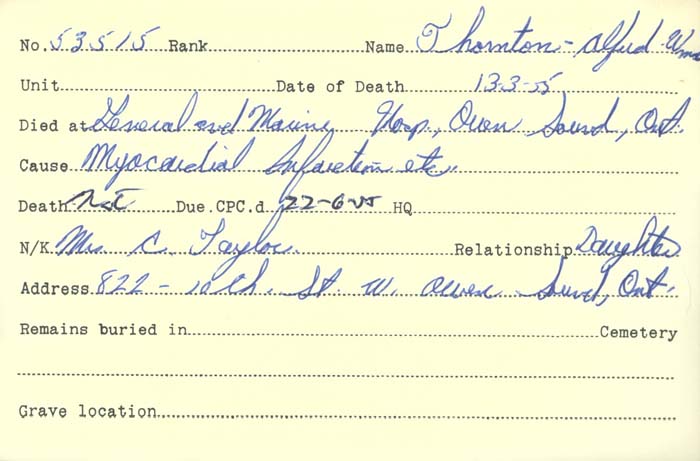 No. 53515 Rank Name Thornton - Alfred Wm
Unit Date of Death 13-3-55
Died at General and Marine Hosp, Owen Sound, Ont.
Cause Myocardial Infarction etc.
Death Not Due. CPC.d. 22-6-55 HQ
N/K Mrs C. Taylor Relationship Daughter
Address 822 - 10th. St. W. Owen Sound, Ont.
Remains buried in Cemetery
Grave location